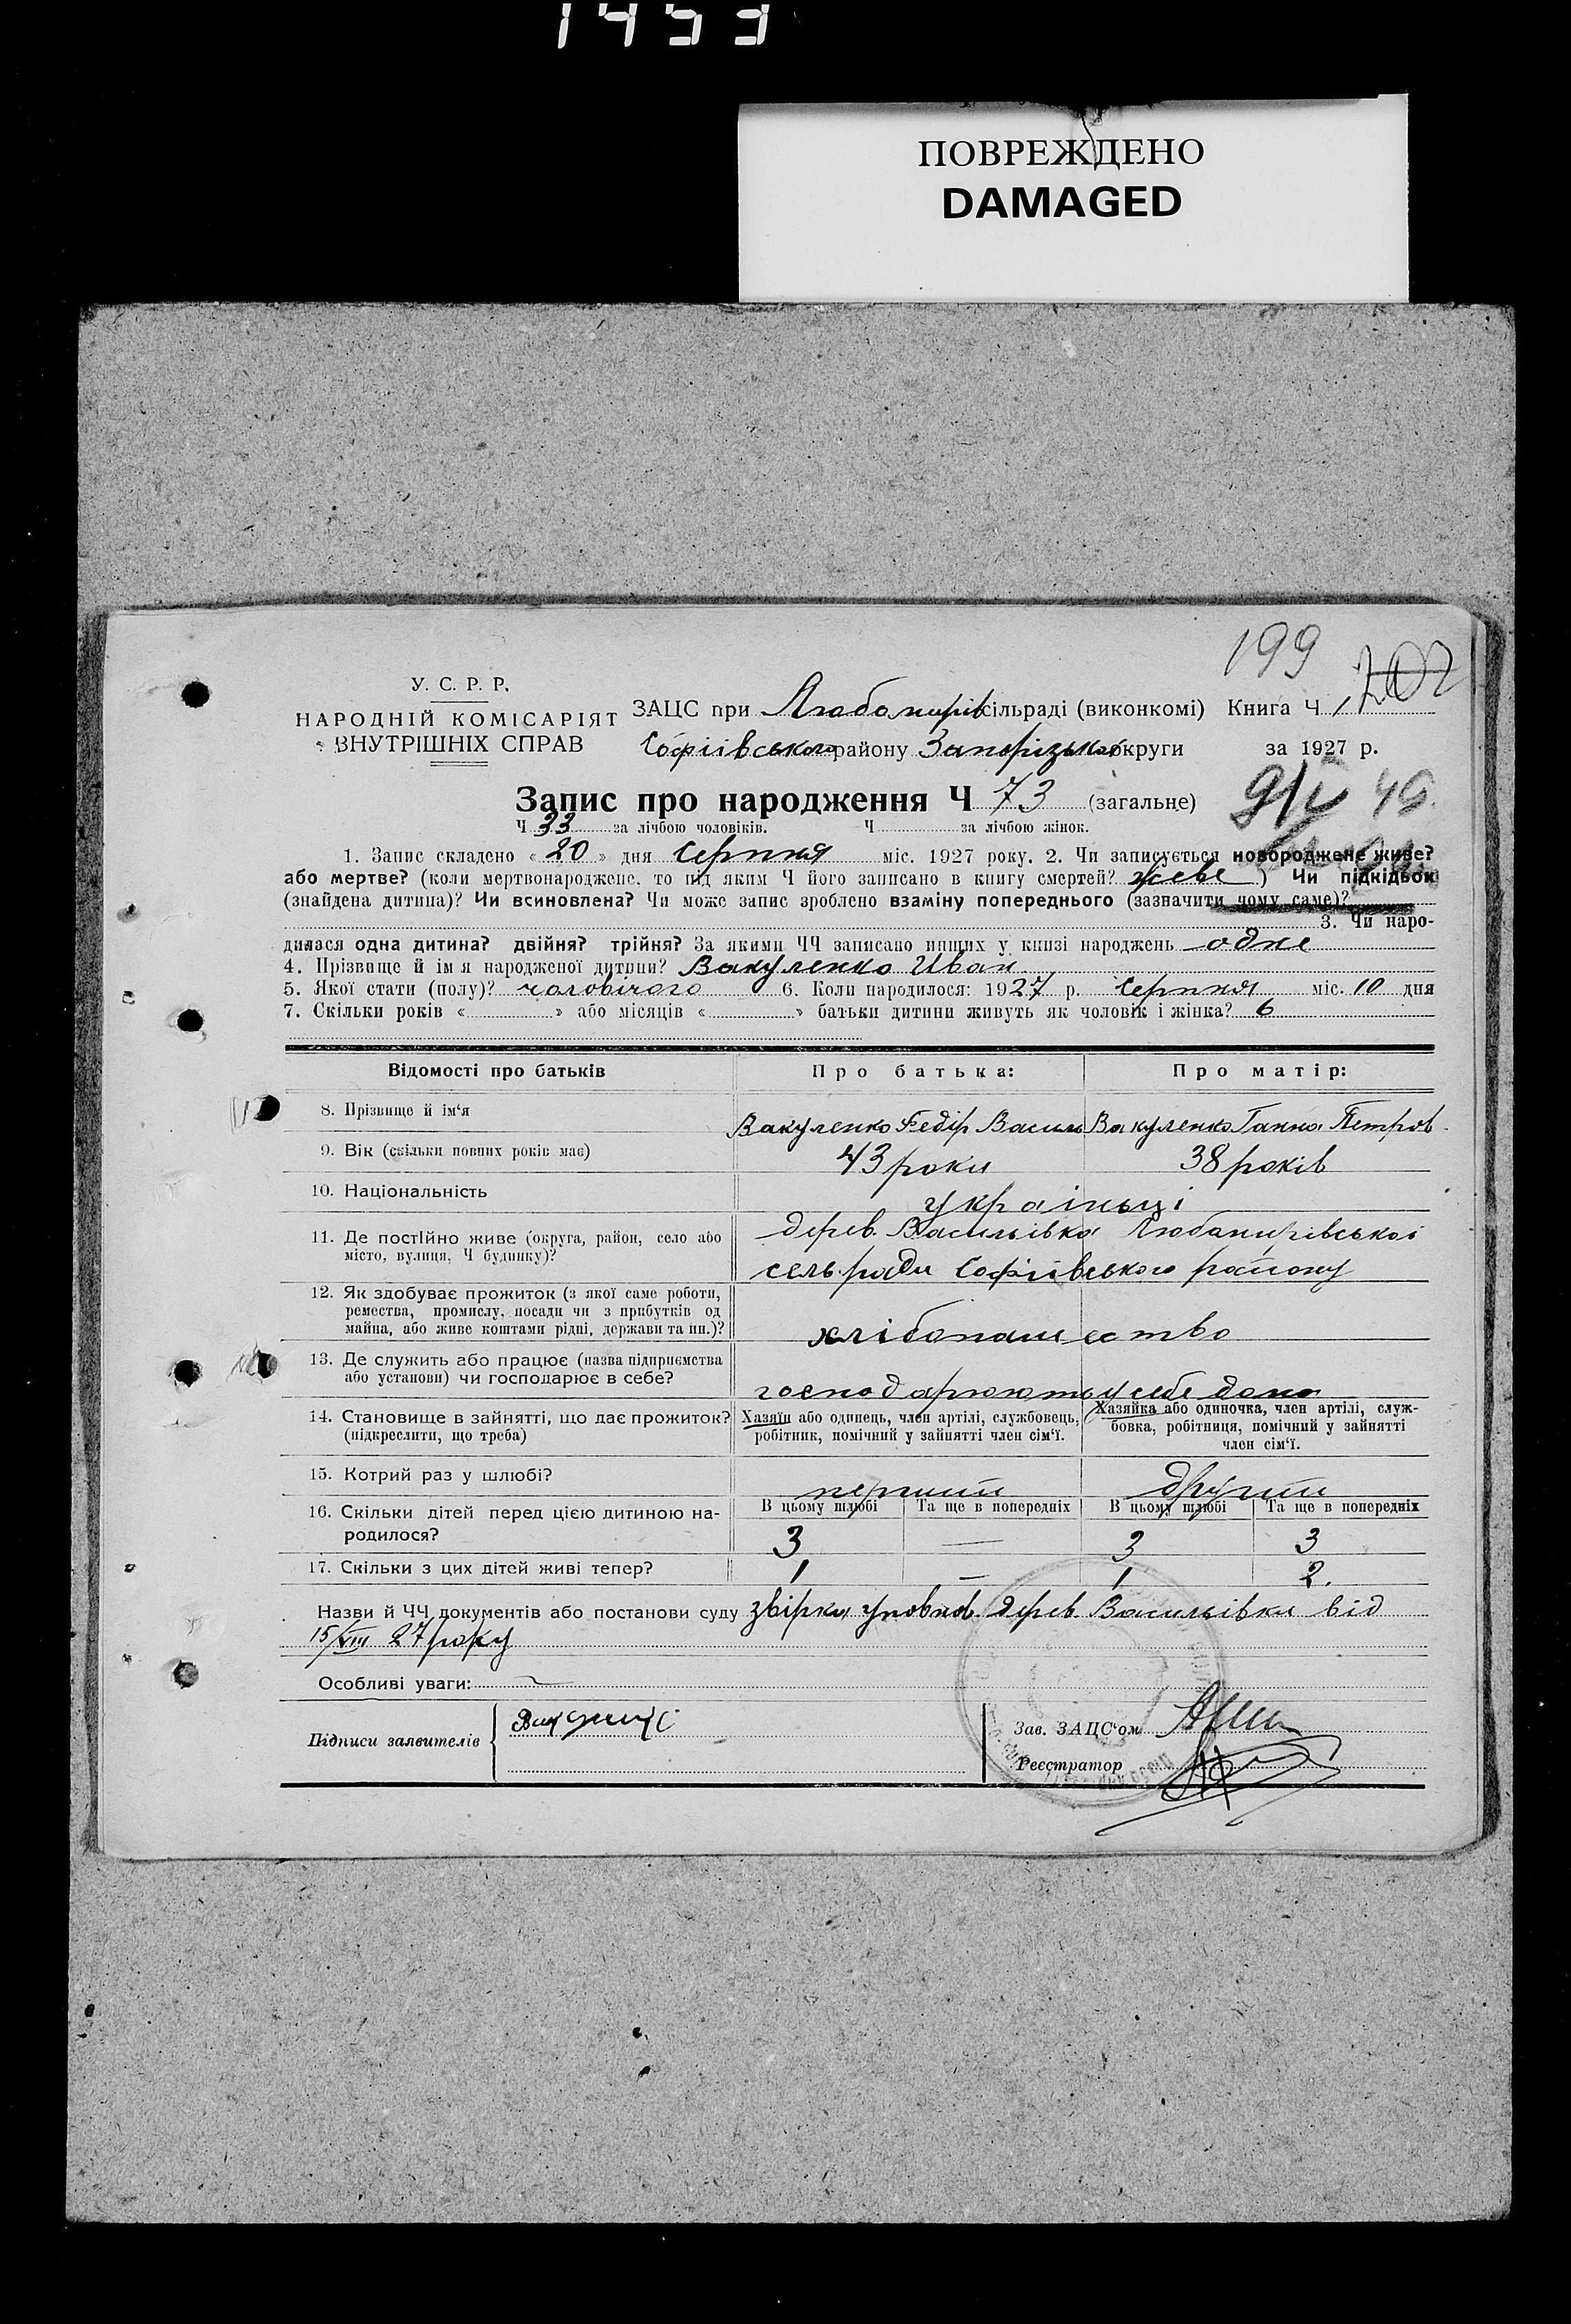 1453
ПОВРЕЖДЕНО
DAMAGED
199
202
У. С. Р. Р.
НАРОДНІЙ КОМІСАРІЯТ
ВНУТРІШНІХ СПРАВ
ЗАЦС при Любомирів сільраді (виконкомі) Книга Ч 1
Софіївського району Запорізької округи за 1927 р.
Запис про народження Ч 73 (загальне)
Ч 33 за лічбою чоловіків. Ч за лічбою жінок.
1. Запис складено « 20 » дня Серпня міс. 1927 року. 2. Чи записується новороджене живе?
або мертве? (коли мертвонароджене, то під яким Ч його записано в книгу смертей? живе ) Чи підкідьок
(знайдена дитина)? Чи всиновлена? Чи може запис зроблено взаміну попереднього (зазначити чому саме)?
3. Чи наро-
дилася одна дитина? двійня? трійня? За якими ЧЧ записано инших у книзі народжень одне
4. Прізвище й ім я народженої дитини? Вакуленко Иван
5. Якої стати (полу)? чоловічого 6. Коли народилося: 1927 р. Серпня міс. 10 дня
7. Скільки років « » або місяців « » батьки дитини живуть як чоловік і жінка? 6
Відомості про батьків Про батька: Про матір:
8. Прізвище й ім‘я Вакуленко Федір Василь Вакуленко Ганна Петров
9. Вік (скільки повних років має) 43 роки 38 років
10. Національність українці
11. Де постійно живе (округа, район, село або
місто, вулиця, Ч будинку)?
дерев. Васильівка Любомирівської
сельради Софіівського району
12. Як здобуває прожиток (з якої саме роботи,
ремества, промислу, посади чи з прибутків од
майна, або живе коштами рідні, держави та ин.)?
хлібопашество
13. Де служить або працює (назва підприємства
або установи) чи господарює в себе?
господарюють у себе дома
14. Становище в зайнятті, що дає прожиток?
(підкреслити, що треба)
Хазяїн або одинець, член артілі, службовець,
робітник, помічний у зайнятті член сім‘ї.
Хазяйка або одиночка, член артілі, служ-
бовка, робітниця, помічний у зайнятті
член сім‘ї.
15. Котрий раз у шлюбі? перший другий
16. Скільки дітей перед цією дитиною на-
родилося?
В цьому шлюбі Та ще в попередніх В цьому шлюбі Та ще в попередніх
3 — 3 3
17. Скільки з цих дітей живі тепер? 1 — 1 2.
Назви й ЧЧ документів або постанови суду звірка уповнов. дерев Васильівки від
15/VIII 27 року
Особливі уваги:
Підписи заявителів
Зав. ЗАЦС‘ом
Реєстратор